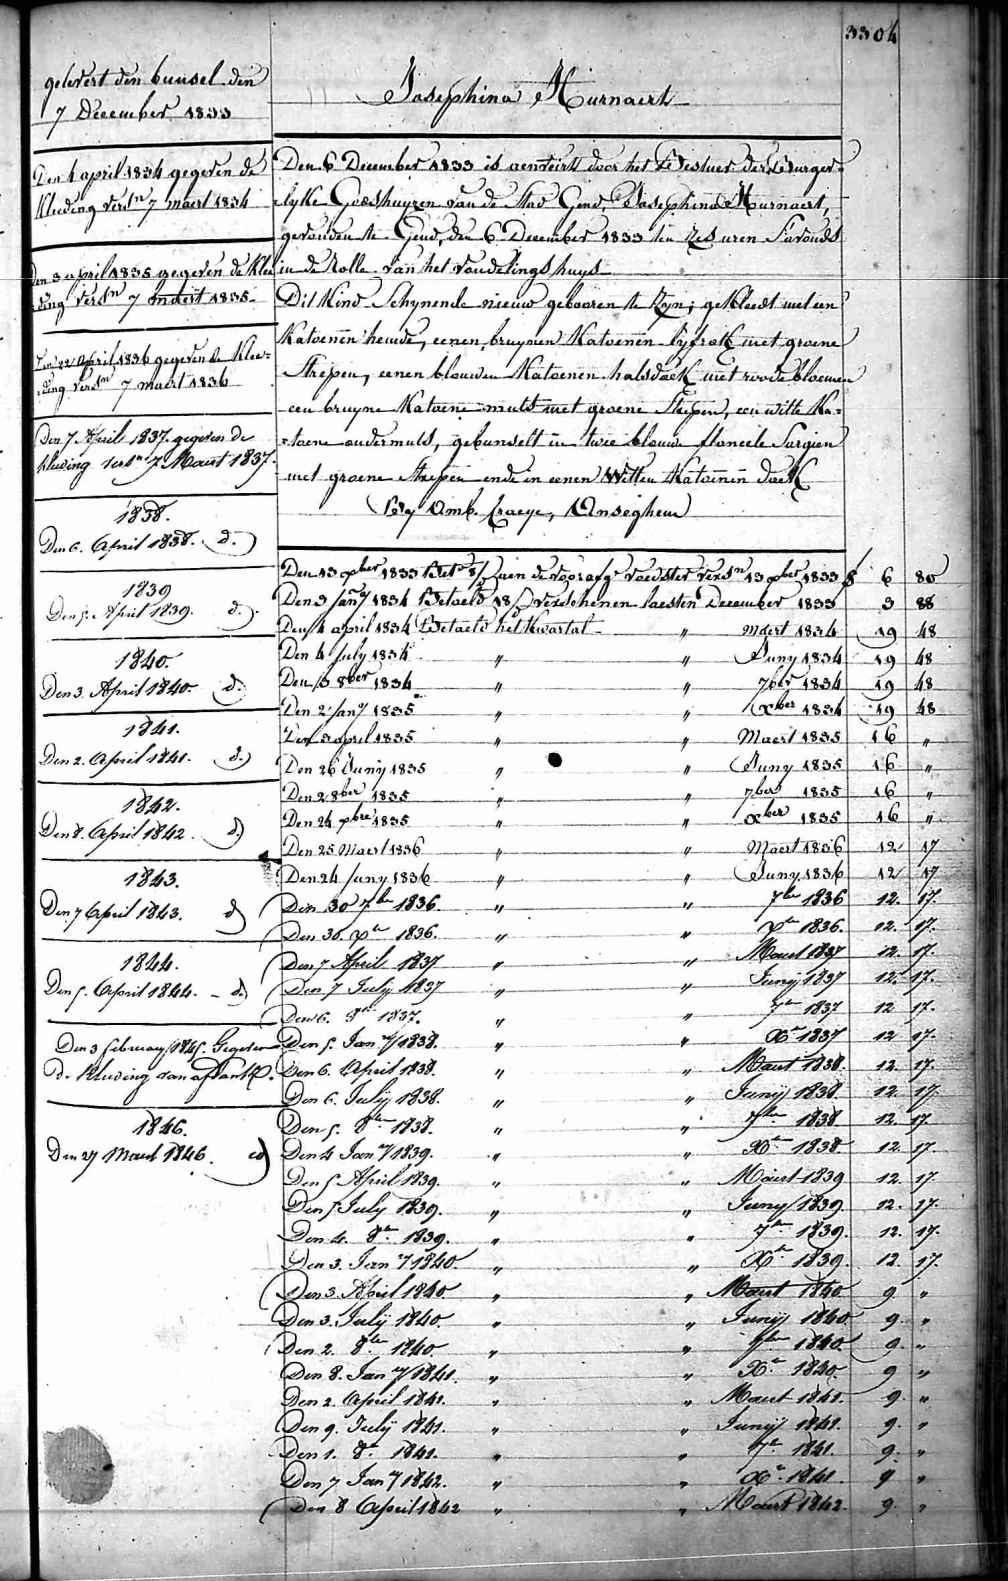 3304
gelevert den bunsel den
7 December 1833
Josephina Murnaert
Den 4 april 1834 gegeven de
kleeding versn 7 maert 1834
Den 3 april 1835 gegeven de klee
ding versn 7 maert 1835
Den 22 April 1836 gegeven de klee=
ding versn 7 maert 1836
Den 7 April 1837 gegeven de
kleeding versn 7 Maert 1837
1838.
Den 6. April 1838. d.
1839
Den 5. April 1839. d.
1840.
Den 3. April 1840. d.
1841.
Den 2. April 1841. d.
1842.
Den 8. April 1842 d)
1843.
Den 7 April 1843. d)
1844.
Den 5. April 1844. d)
Den 3 february 1845. Gegeven
de kleeding van
1846.
Den 27 Maert 1846. id)
Den 6 December 1833 is aenveirt door het Bestuer der Burger=
lyke Godshuyzen van de Stad Gend, Josephina Murnaert,
gevonden te Gend, den 6 December 1833 ten zes uren s'avonds
in de Rolle van het vondelingshuys
Dit Kind Schynende nieuw gebooren te zyn; gekleedt met een
Katoenen hemde, eenen bruynen Katoenen lyfrok met groene
Strepen, eenen blouwen Katoenen halsdoek met roode bloemen
een bruyne Katoene muts met groene Strepen, een witte Ka=
=toene ondermuts, gebunselt in twee blouw flaneele Surgien
met groene Strepen ende in eenen Witten Katoenen doek
By Amb. Craeye, Anseghem
Den 13 xber 1833 Bet. aen de voorzegde voedster versn 13 xber 1833 f 6 80
Den 3 Jany 1834 Betaeld 18 verschenen laesten December 1833 3 88
Den 4 april 1834 Betaeld het kwartal " maert 1834 19 48
Den 4 July 1834 " " Juny 1834 19 48
Den 3 8ber 1834 " " 7ber 1834 19 48
Den 2 Jany 1835 " " xber 1834 19 48
Den 3 april 1835 " " Maert 1835 16 "
Den 26 Juny 1835 " " Juny 1835 16 "
Den 2 8ber 1835 " " 7ber 1835 16 "
Den 24 xbre 1835 " " xber 1835 16 "
Den 25 Maert 1836 " " Maert 1836 12 17
Den 24 Juny 1836 " " Juny 1836 12 17
Den 30 7ber 1836. " " 7ber 1836 12. 17.
Den 30. xber 1836. " " xber 1836. 12. 17.
Den 7 April 1837 " " Maert 1837 12. 17.
Den 7 July 1837 " " Juny 1837 12. 17.
Den 6. 8ber 1837. " " 7ber 1837 12 17.
Den 5. Jany 1838. " " Xer 1837 12 17.
Den 6. April 1838. " " Maert 1838. 12. 17.
Den 6. July 1838. " " Junij 1838. 12. 17.
Den 5. 8ber 1838. " " 7ber 1838 12. 17.
Den 4 Jany 1839. " " Xber 1838 12. 17.
Den 5 April 1839. " " Maert 1839 12. 17.
Den 5 July 1839. " " Juny 1839 12. 17.
Den 4. 8ber 1839. " " 7ber 1839. 12. 17.
Den 3. Jany 1840. " " Xber 1839. 12. 17.
Den 3. April 1840 " " Maert 1840 9 "
Den 3. July 1840. " " Junij 1840 9. "
Den 2. 8ber 1840. " " 7ber 1840. 9. "
Den 8. Jany 1841. " " Xer 1840. 9 "
Den 2. April 1841. " " Maert 1841. 9. "
Den 9. July 1841. " " Junij 1841. 9. "
Den 1. 8er 1841. " " 7er 1841. 9. "
Den 7 Jany 1842. " " Xer 1841. 9 "
Den 8 April 1842 " " Maert 1842. 9. "